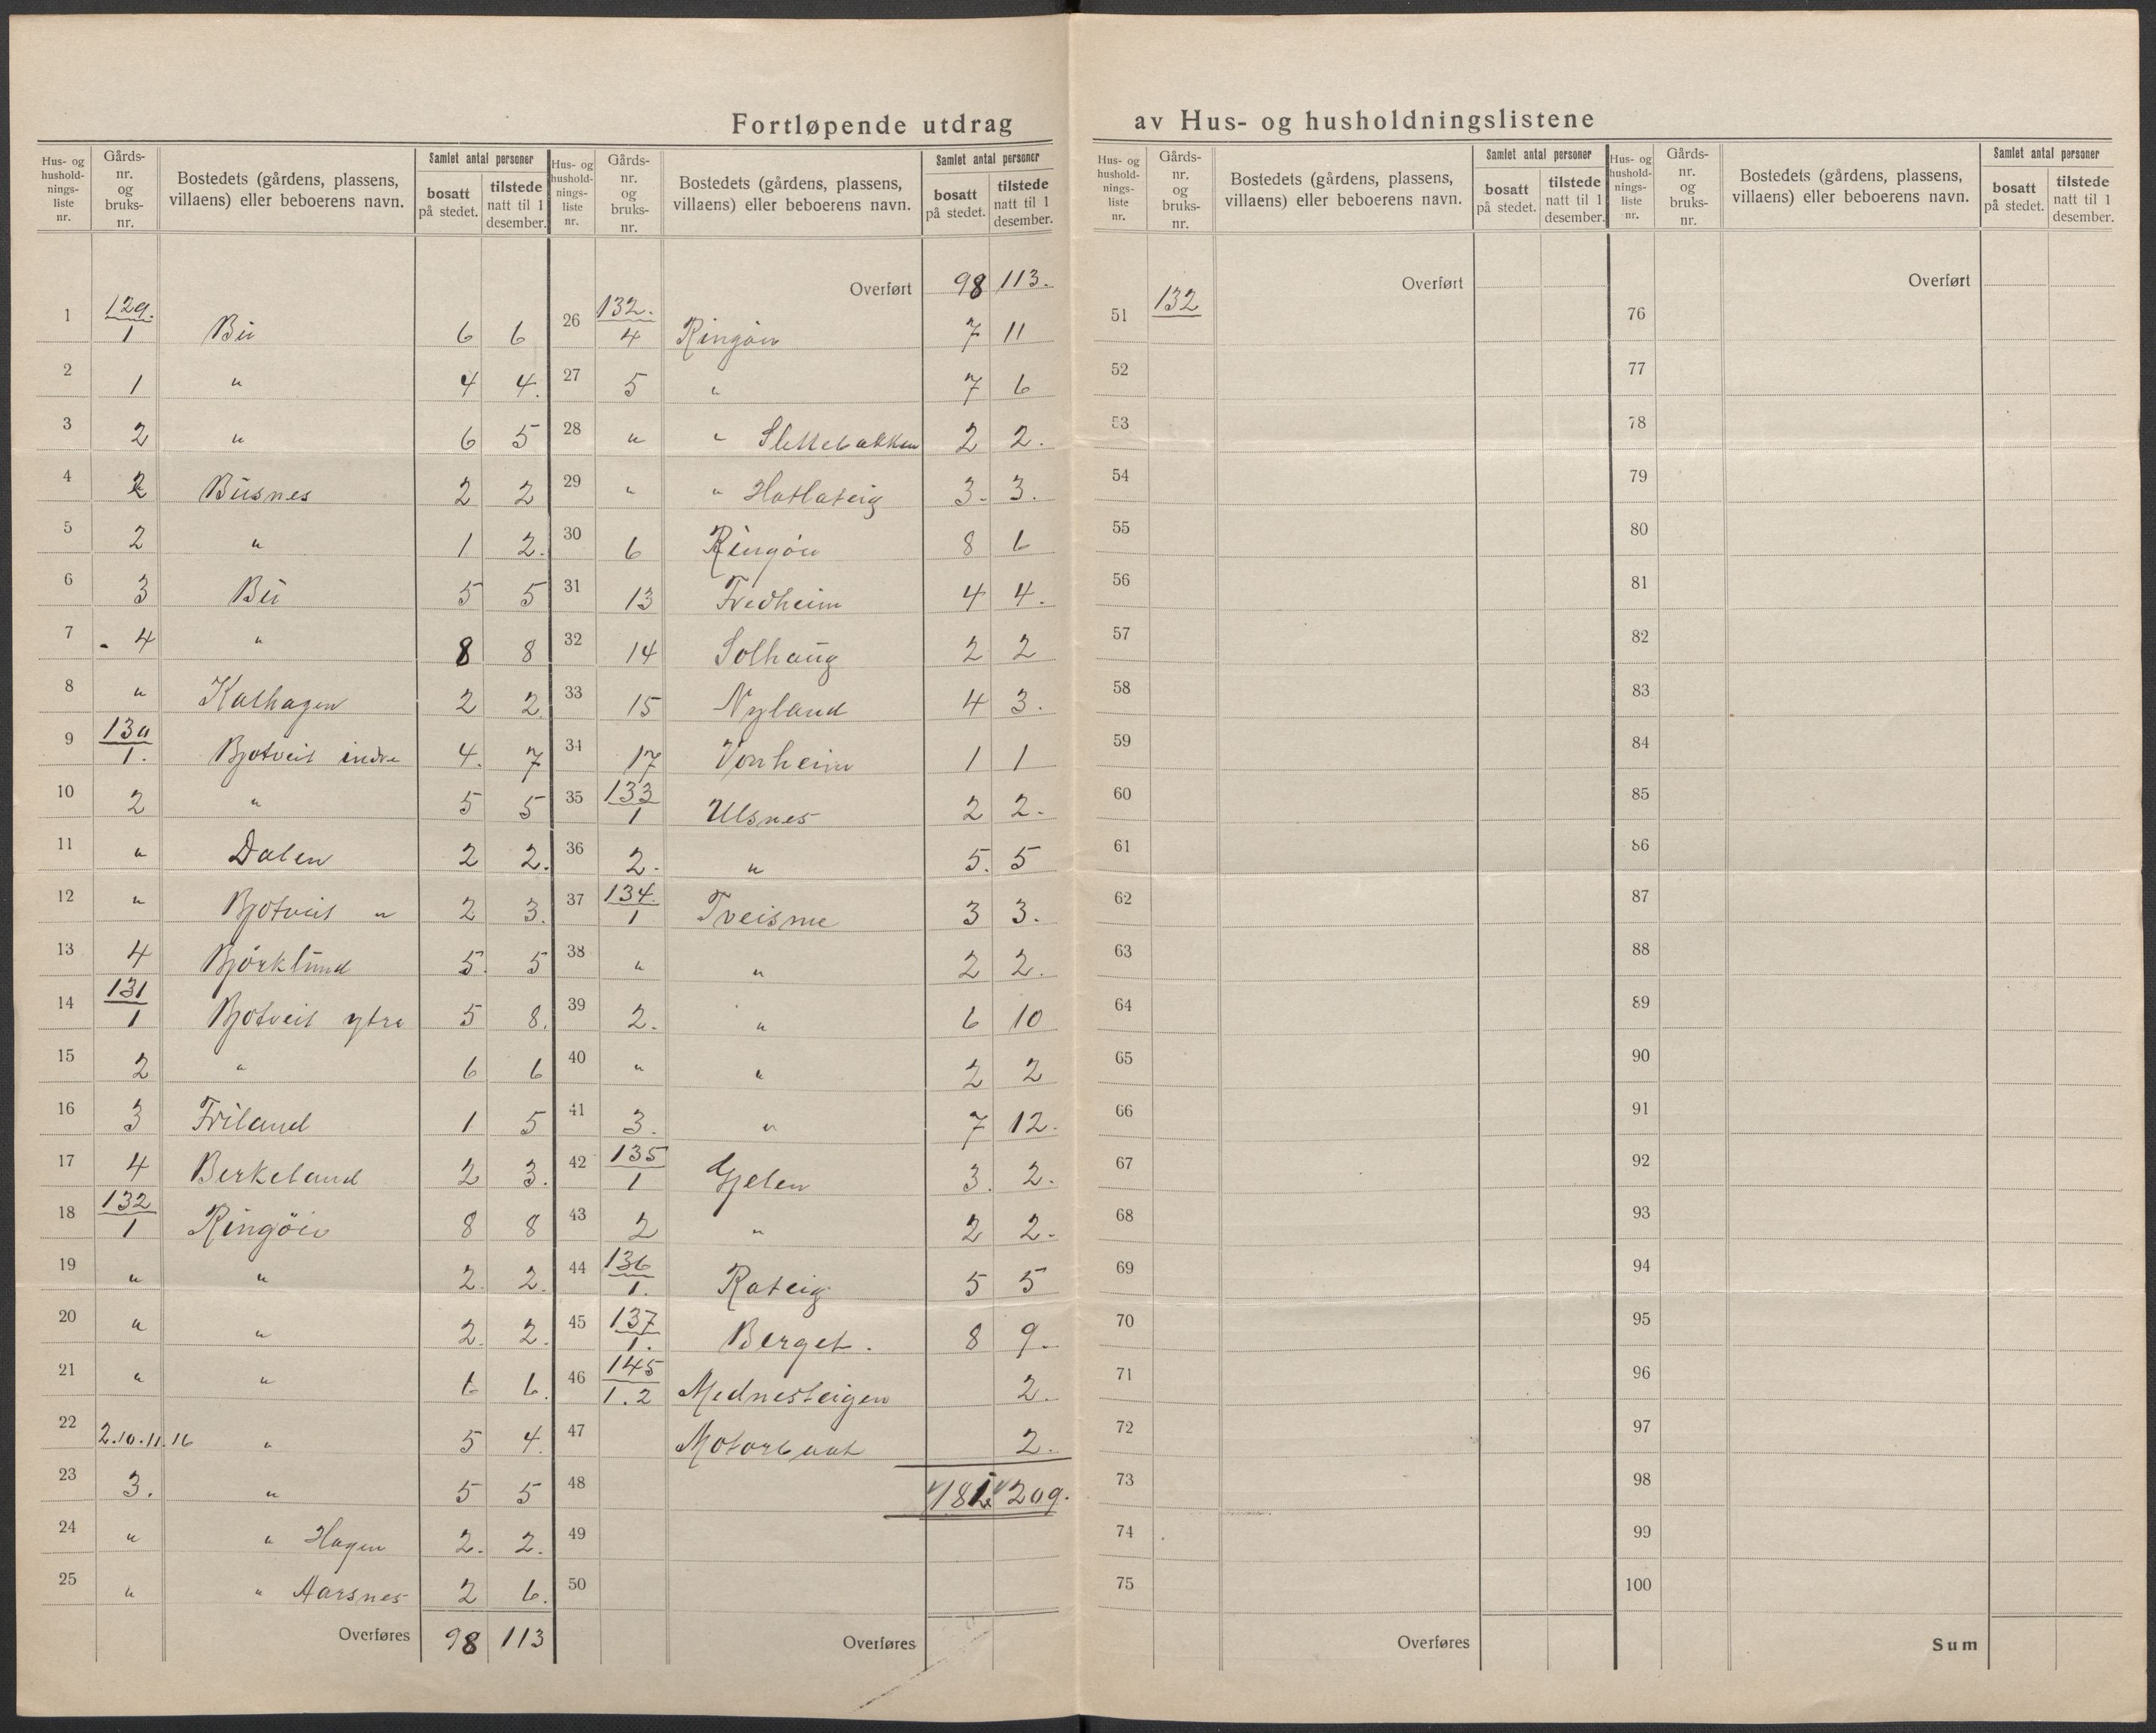 Fortløpende utdrag av Hus- og husholdningslistene
Hus- og hushold- nings- liste nr. | Gårds- nr. og bruks- nr. | Bostedets (gårdens, plassens, villaens) eller beboerens navn. | Samlet antal personer | bosatt på stedet. | tilstede natt til 1 desember.
1 129. 1 Bu 6 6
2 1 " 4 4.
3 2 " 6 5
4 2 Busnes 2 2
5 2 " 1 2.
6 3 Bu 5 5
7 4 " 8 8
8 " Kalhagen 2 2
9 130 1. Bjotveit indre 4. 7
10 2 " 5 5
11 " Dalen 2 2.
12 " Bjotveit " 2 3.
13 4 Bjørklund 5. 5
14 131 1 Bjotveit ytre 5 8.
15 2 " 6 6
16 3 Friland 1 5
17 4 Berkeland 2 3.
18 132 1 Ringöiv 8 8
19 " " 2. 2.
20 " " 2. 2.
21 " " 6 6.
22 2.10.11.16 " 5 4.
23 3. " 5 5
24 " " Hagen 2. 2.
25 " " Aarsnes 2 6.
Overføres 98 113
Hus- og hushold- nings- liste nr. | Gårds- nr. og bruks- nr. | Bostedets (gårdens, plassens, villaens) eller beboerens navn. | Samlet antal personer | bosatt på stedet. | tilstede natt til 1 desember.
Overført 98 113.
26 132. 4 Ringöiv 7 11
27 5 " 7 6
28 " " Slettebakken 2 2.
29 " " Hatlateig 3. 3.
30 6 Ringöiv 8 6
31 13 Fredheim 4 4.
32 14 Solhaug 2 2
33 15 Nyland 4 3.
34 17 Vonheim 1 1
35 133 1 Ulsnes 2 2.
36 2. " 5. 5
37 134. 1 Tveisme 3 3.
38 " " 2 2.
39 2. " 6 10
40 " " 2 2
41 3. " 7 12.
42 135 1 Gjelen 3. 2.
43 2 " 2 2.
44 136 1. Rateig 5 5
45 137 1. Berget. 8 9.
46 145 1.2 Mednesteigen 2.
47 Motorbaat 2.
48 209.
49
50
Overføres
Hus- og hushold- nings- liste nr. | Gårds- nr. og bruks- nr. | Bostedets (gårdens, plassens, villaens) eller beboerens navn. | Samlet antal personer | bosatt på stedet. | tilstede natt til 1 desember.
Overført
51 132
52
53
54
55
56
57
58
59
60
61
62
63
64
65
66
67
68
69
70
71
72
73
74
75
Overføres
Hus- og hushold- nings- liste nr. | Gårds- nr. og bruks- nr. | Bostedets (gårdens, plassens, villaens) eller beboerens navn. | Samlet antal personer | bosatt på stedet. | tilstede natt til 1 desember.
Overført
76
77
78
79
80
81
82
83
84
85
86
87
88
89
90
91
92
93
94
95
96
97
98
99
100
Sum